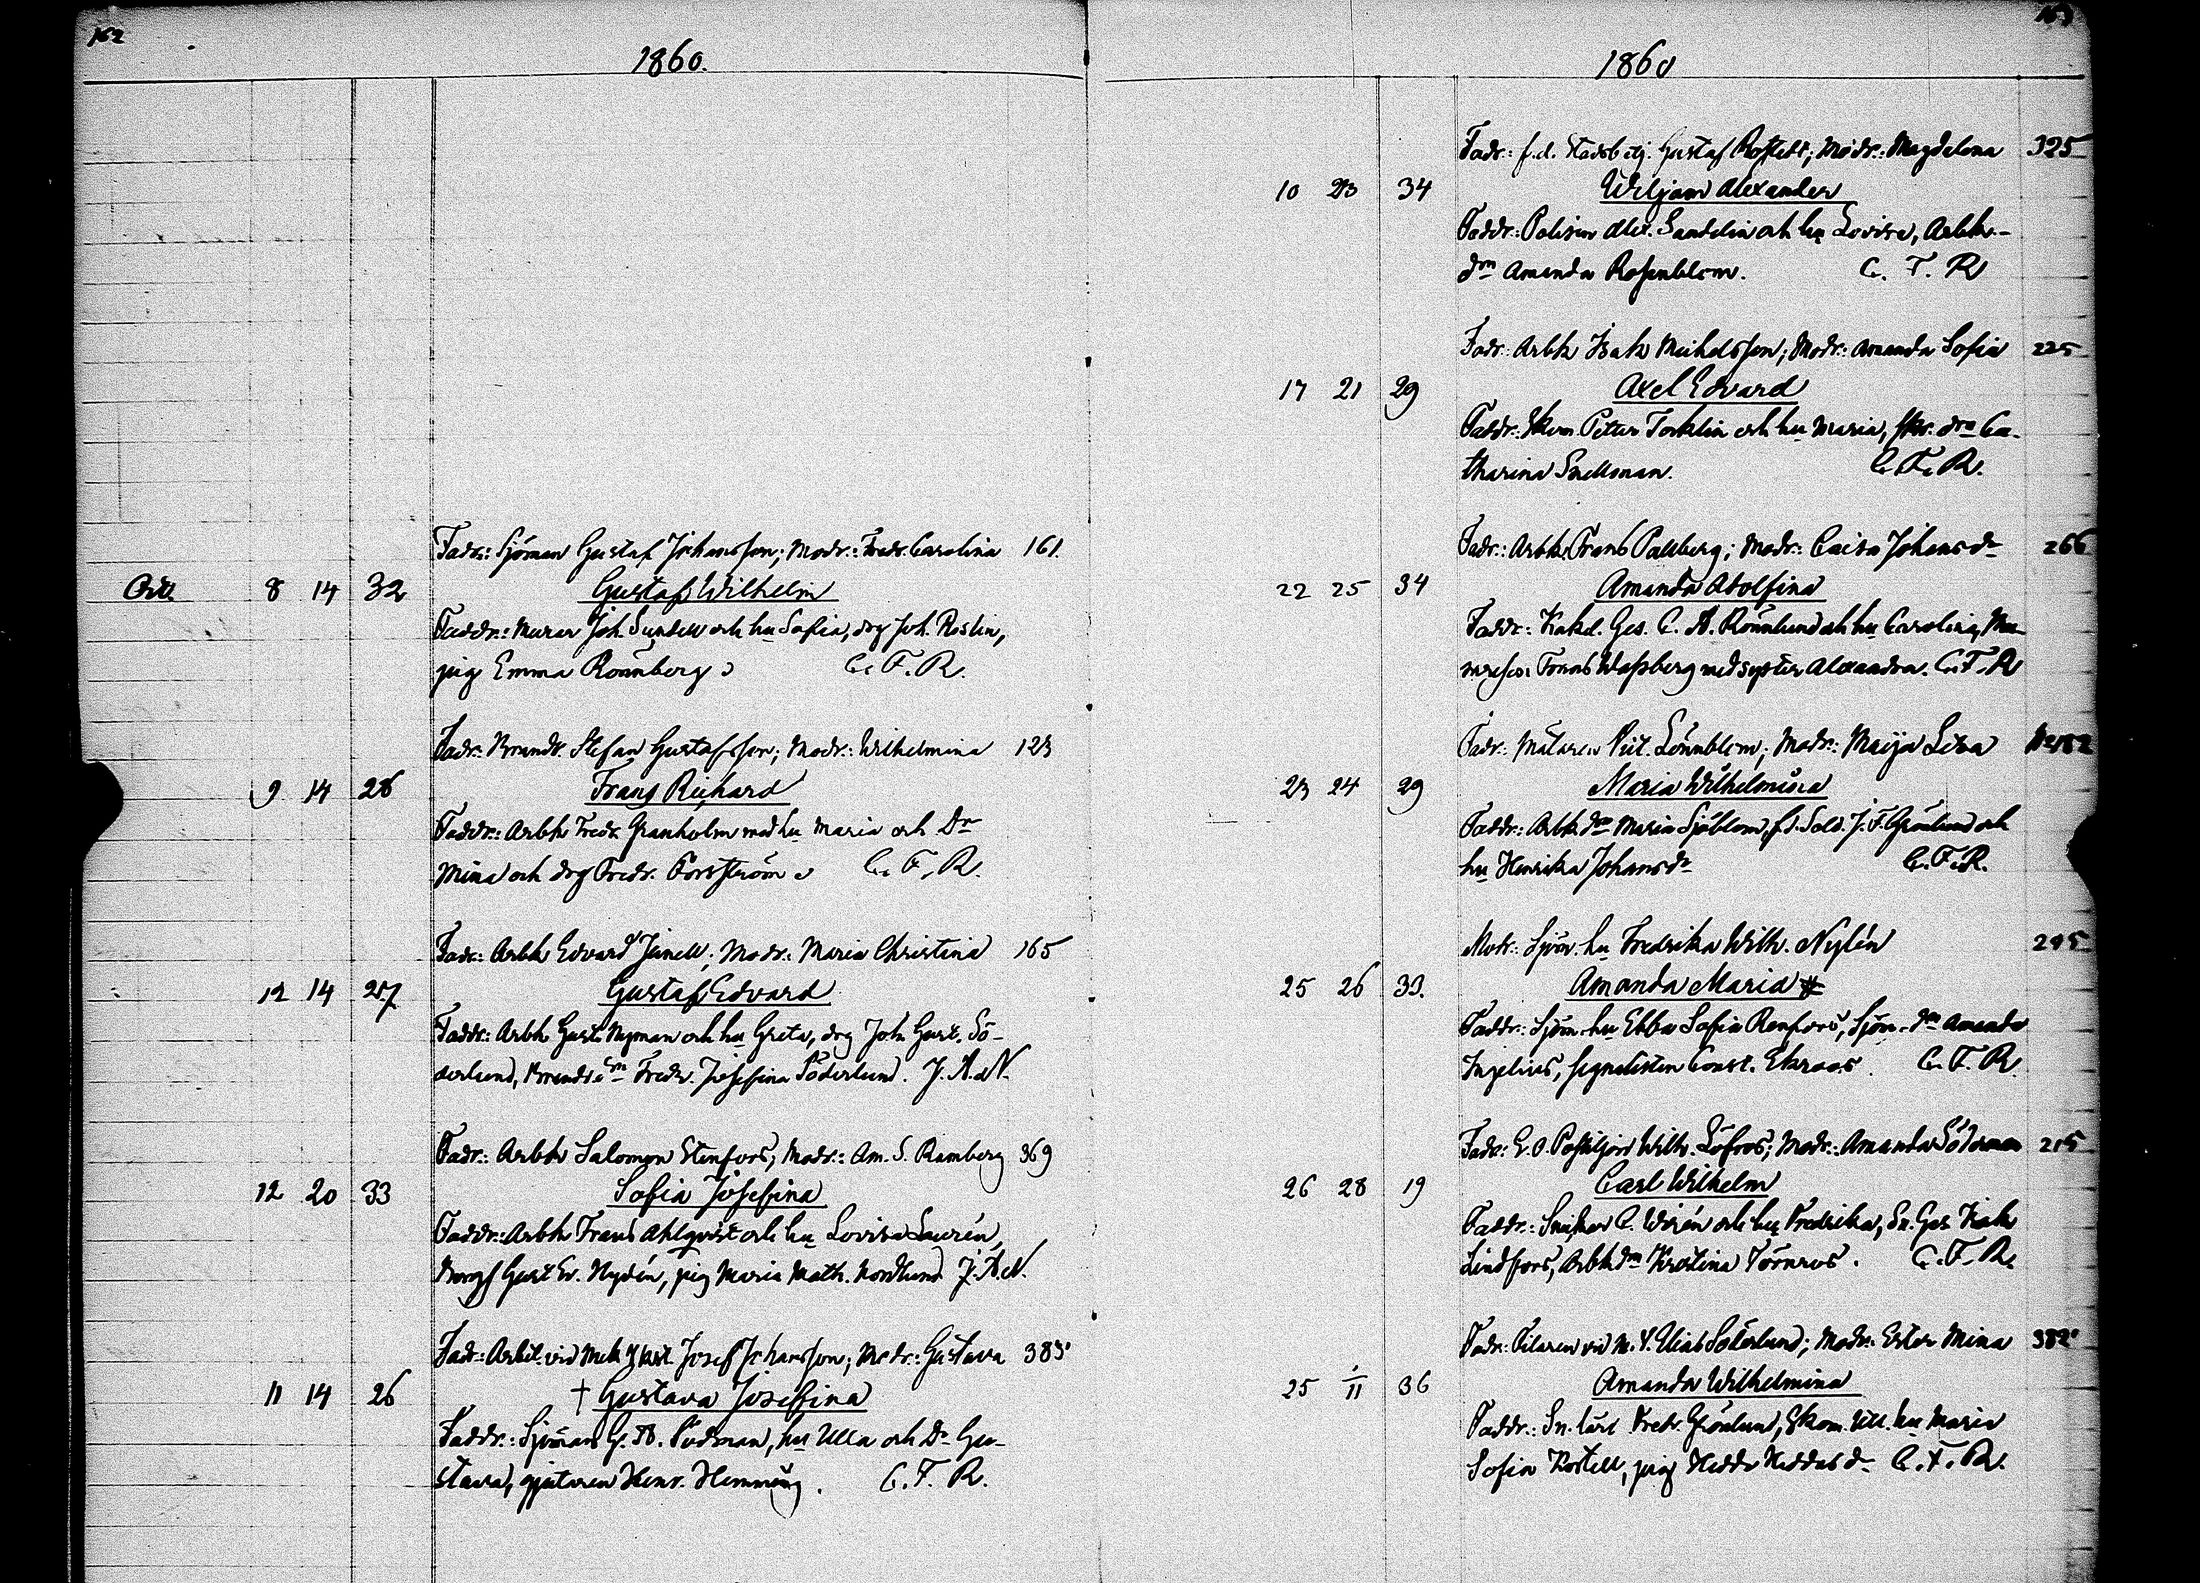 162
1860.
Fadr.: Sjöman Gustaf Johansson; Modr.: Fredr. Carolina 161.
Oct. 8 14 32 Gustaf Wilhelm
Faddr.: Murar Joh. Sundell och hu Sofia, drg Joh. Roslin,
pig Emma Rönnberg C. F. R.
Fadr.: Brands. Stefan Gustafsson; Modr.: Wilhelmina 123
9 14 26 Frans Richard
Faddr.: Arbk Fredr. Granholm med hu Maria och Dr
Mina och drg Fredr. Forsström C. F. R.
Fadr.: Arbk Edvard Junell; Modr.: Maria Christina 165
12 14 27 Gustaf Edvard
Faddr.: Arbk Gust. Nyman och hu Greta, drg Joh. Gust. Sö-
derlund, Fredr. Josefina Söderlund. J. A. N.
Fadr.: Arbk Salomon Stenfors; Modr.: Am. S. Ramberg 369
12 20 33 Sofia Josefina
Faddr.: Arbk Frans Ahlqvist och hu Lovisa Laurén,
Gust Ev. Nydén, pig Maria Math. Nordlund J. A. N.
Fadr.: Arbet. vid Mek Josef Johansson; Modr.: Gustava 385
11 14 26 † Gustava Josefina
Faddr.: Sjöman G. A. Södman, hu Ulla och Dr Gu-
stava, gjutaren Henr. Hemming. C. F. R.
163
1860
Fadr.: f.d. Stadsbetj. Gustaf Roftedt; Modr.: Magdelena 325
10 23 34 Wiljam Alexander
Faddr.: Polisen Alex. Sandelin och hu Lovisa, Arbk-
dm Amanda Rosenblom. C. F. R
Fadr.: Arbk Isak Michelsson; Modr.: Amanda Sofia 225
17 21 29 Axel Edvard
Faddr.: Skom. Petter Torklin och hu Maria, dra Ca-
tharina Snellman. C. F. R.
Fadr.: Arbk Frans Pahlberg; Modr.: Caisa Johansdr 266
22 25 34 Amanda Adolfina
Faddr.: Kakel. Ges. C. A. Rönnlund och hu Carolina, Mu-
Tomas Wassberg med syster Alexandra. C. F. R
Fadr.: Mätaren Lönnblom; Modr.: Maija Lisa
23 24 29 Maria Wilhelmina
Faddr.: Arbk drn Maria Sjöblom, f.d. Sold. J. F. Grönlund och
hu Henrika Johansdr C. F. R.
Modr.: Sjöm. hu Fredrika Wilh. Nylén 295
25 26 33. Amanda Maria #
Faddr.: Sjöm. hu Ebba Sofia Renfors, Sjöm. dm Amanda
Ingelius, Signalisten Const. Ekroos. C. F. R.
Fadr.: E. O. Postiljon Wilh. Löfroos; Modr.: Amanda Söderman 215
26 28 19 Carl Wilhelm
Faddr.: Snickar C. Wirén och hu Fredrika, Sn. Ges. Isak
Lindfors, Arbk dm Kristina Törnroos. C. F. R.
Fadr.: Filaren vid M. V. Elias Söderlund; Modr.: Ester Mina 382
25 1/11 36 Amanda Wilhelmina
Faddr.: Sn. lärl Fredr. Grönlund, Skom. hu Maria
Sofia Kostell, pig Hedda Heddasdr C. F. R.